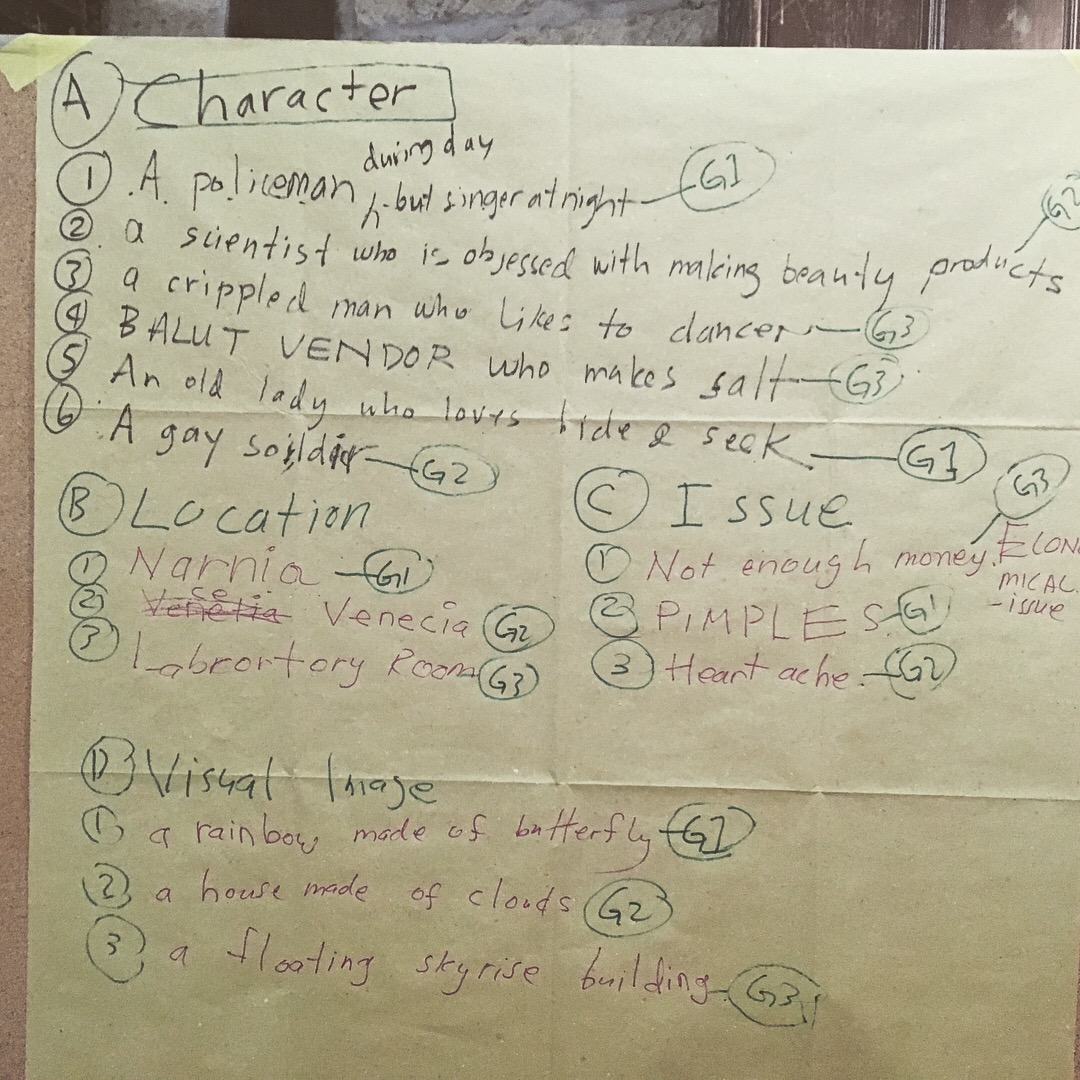 A Character
during day
1 .A. policeman h-but singer at night G1
2. a scientist who is objessed with making beauty products G2
3 a crippled man who likes to dancer G3
4 BALUT VENDOR who makes salt G3
5 An old lady who loves hide & seek G1
6. A gay soildir G2
B Location
1 Narnia G1
ce
2 Venetia Venecia G2
3 Labrortory Room G3
C Issue
1 Not enough money. ECONO G3
MICAL
-issue
2 PIMPLES G1
3 Heart ache. G2
D Visual Image
1 a rainbow made of butterfly G1
2 a house made of clouds G2
3 a floating skyrise building G3